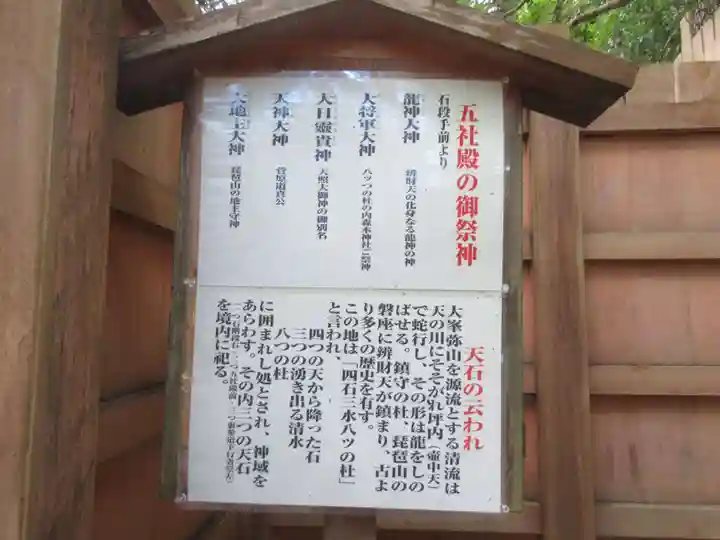 五社殿の御祭神
石段手前より
龍神大神
辨財天の化身なる龍神の神
大将軍大神
八ッつの杜の内森本神社ご祭神
大日靈貴神
天照大御神の御別名
天神大神
菅原道真公
大地主大神
琵琶山の地主守神
天石の云われ
大峯弥山を源流とする清流は
天の川にそそがれ坪内(壷中天)
で蛇行し、その形は龍をしの
ばせる。鎮守の杜、琵琶山の
磐座に辨財天が鎮まり、古よ
り多くの歴史を有す。
この地は「四石三水八ツの杜」
と言われ、
四つの天から降った石
三つの湧き出る清水
八つの杜
に囲まれし処とされ、神域を
あらわす。その内三つの天石
を境内に祀る。